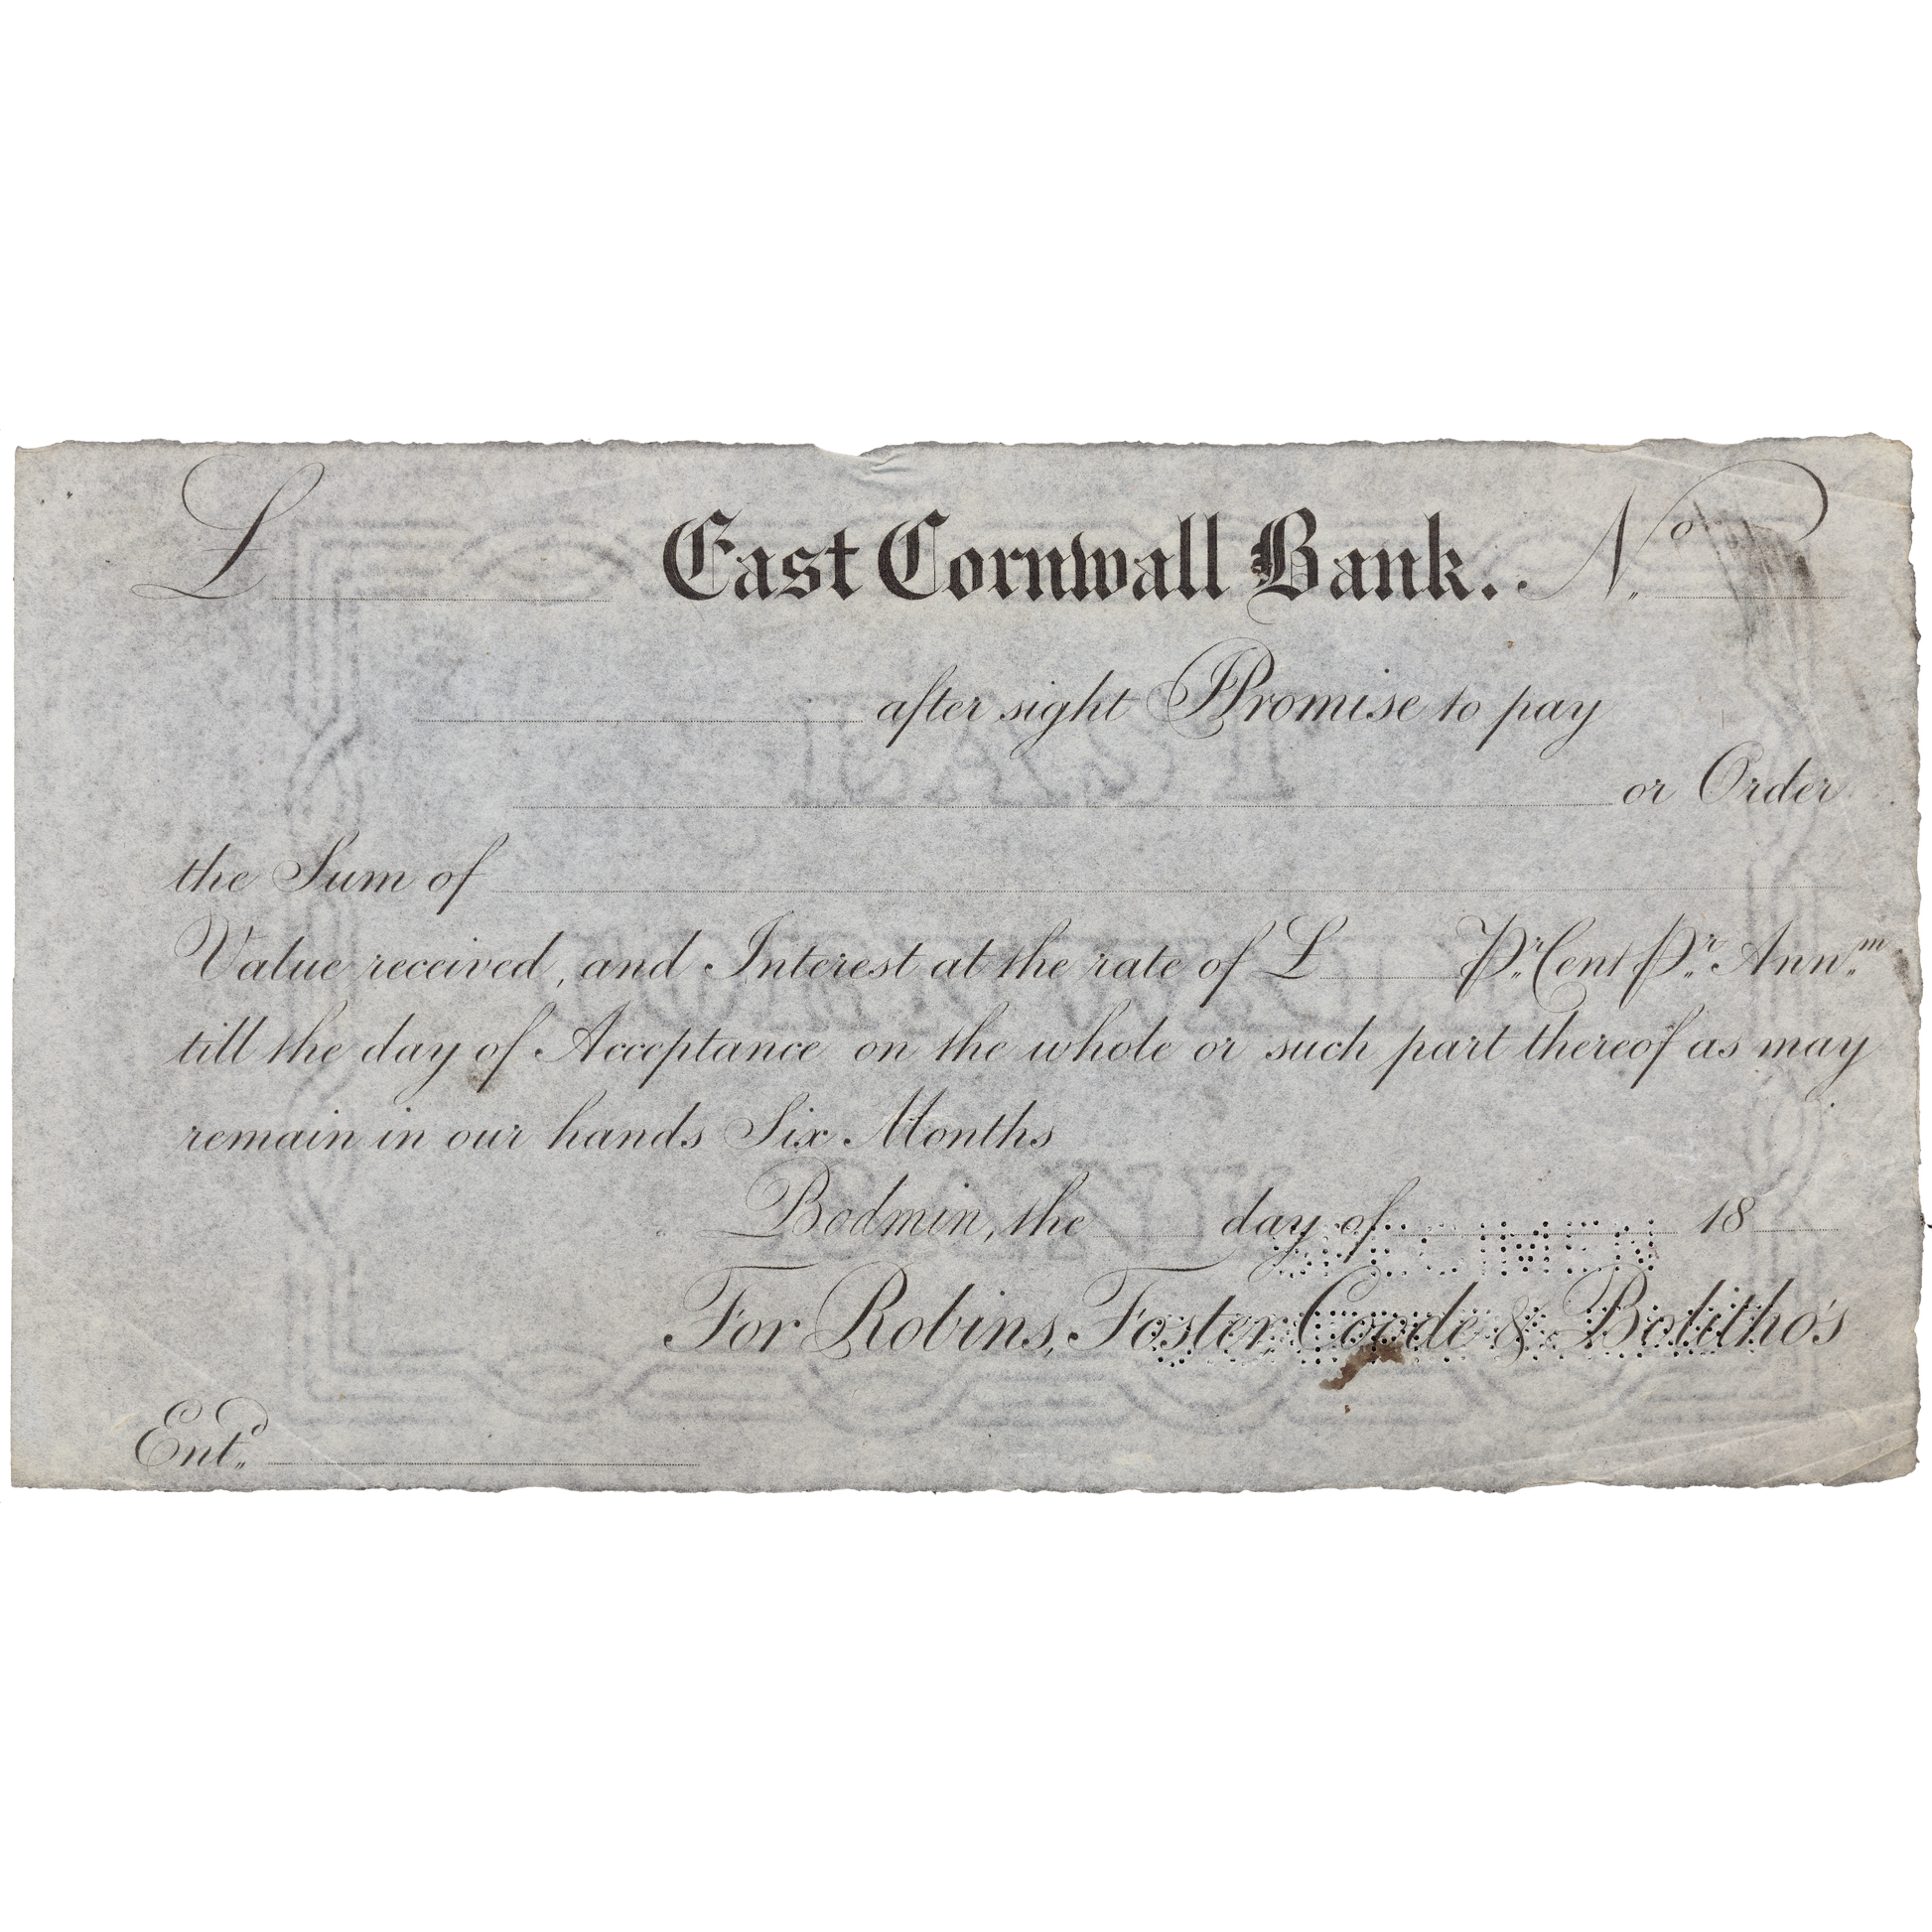 £ East Cornwall Bank. No.
after sight I Promise to pay
or Order
the Sum of
Value received, and Interest at the rate of £ Pr. Cent Pr. Annm.
till the day of Acceptance on the whole or such part thereof as may
remain in our hands Six Months
Bodmin, the day of 18
For Robins, Foster, Coode & Bolitho's
Entd.
EAST
CORNWALL
BANK